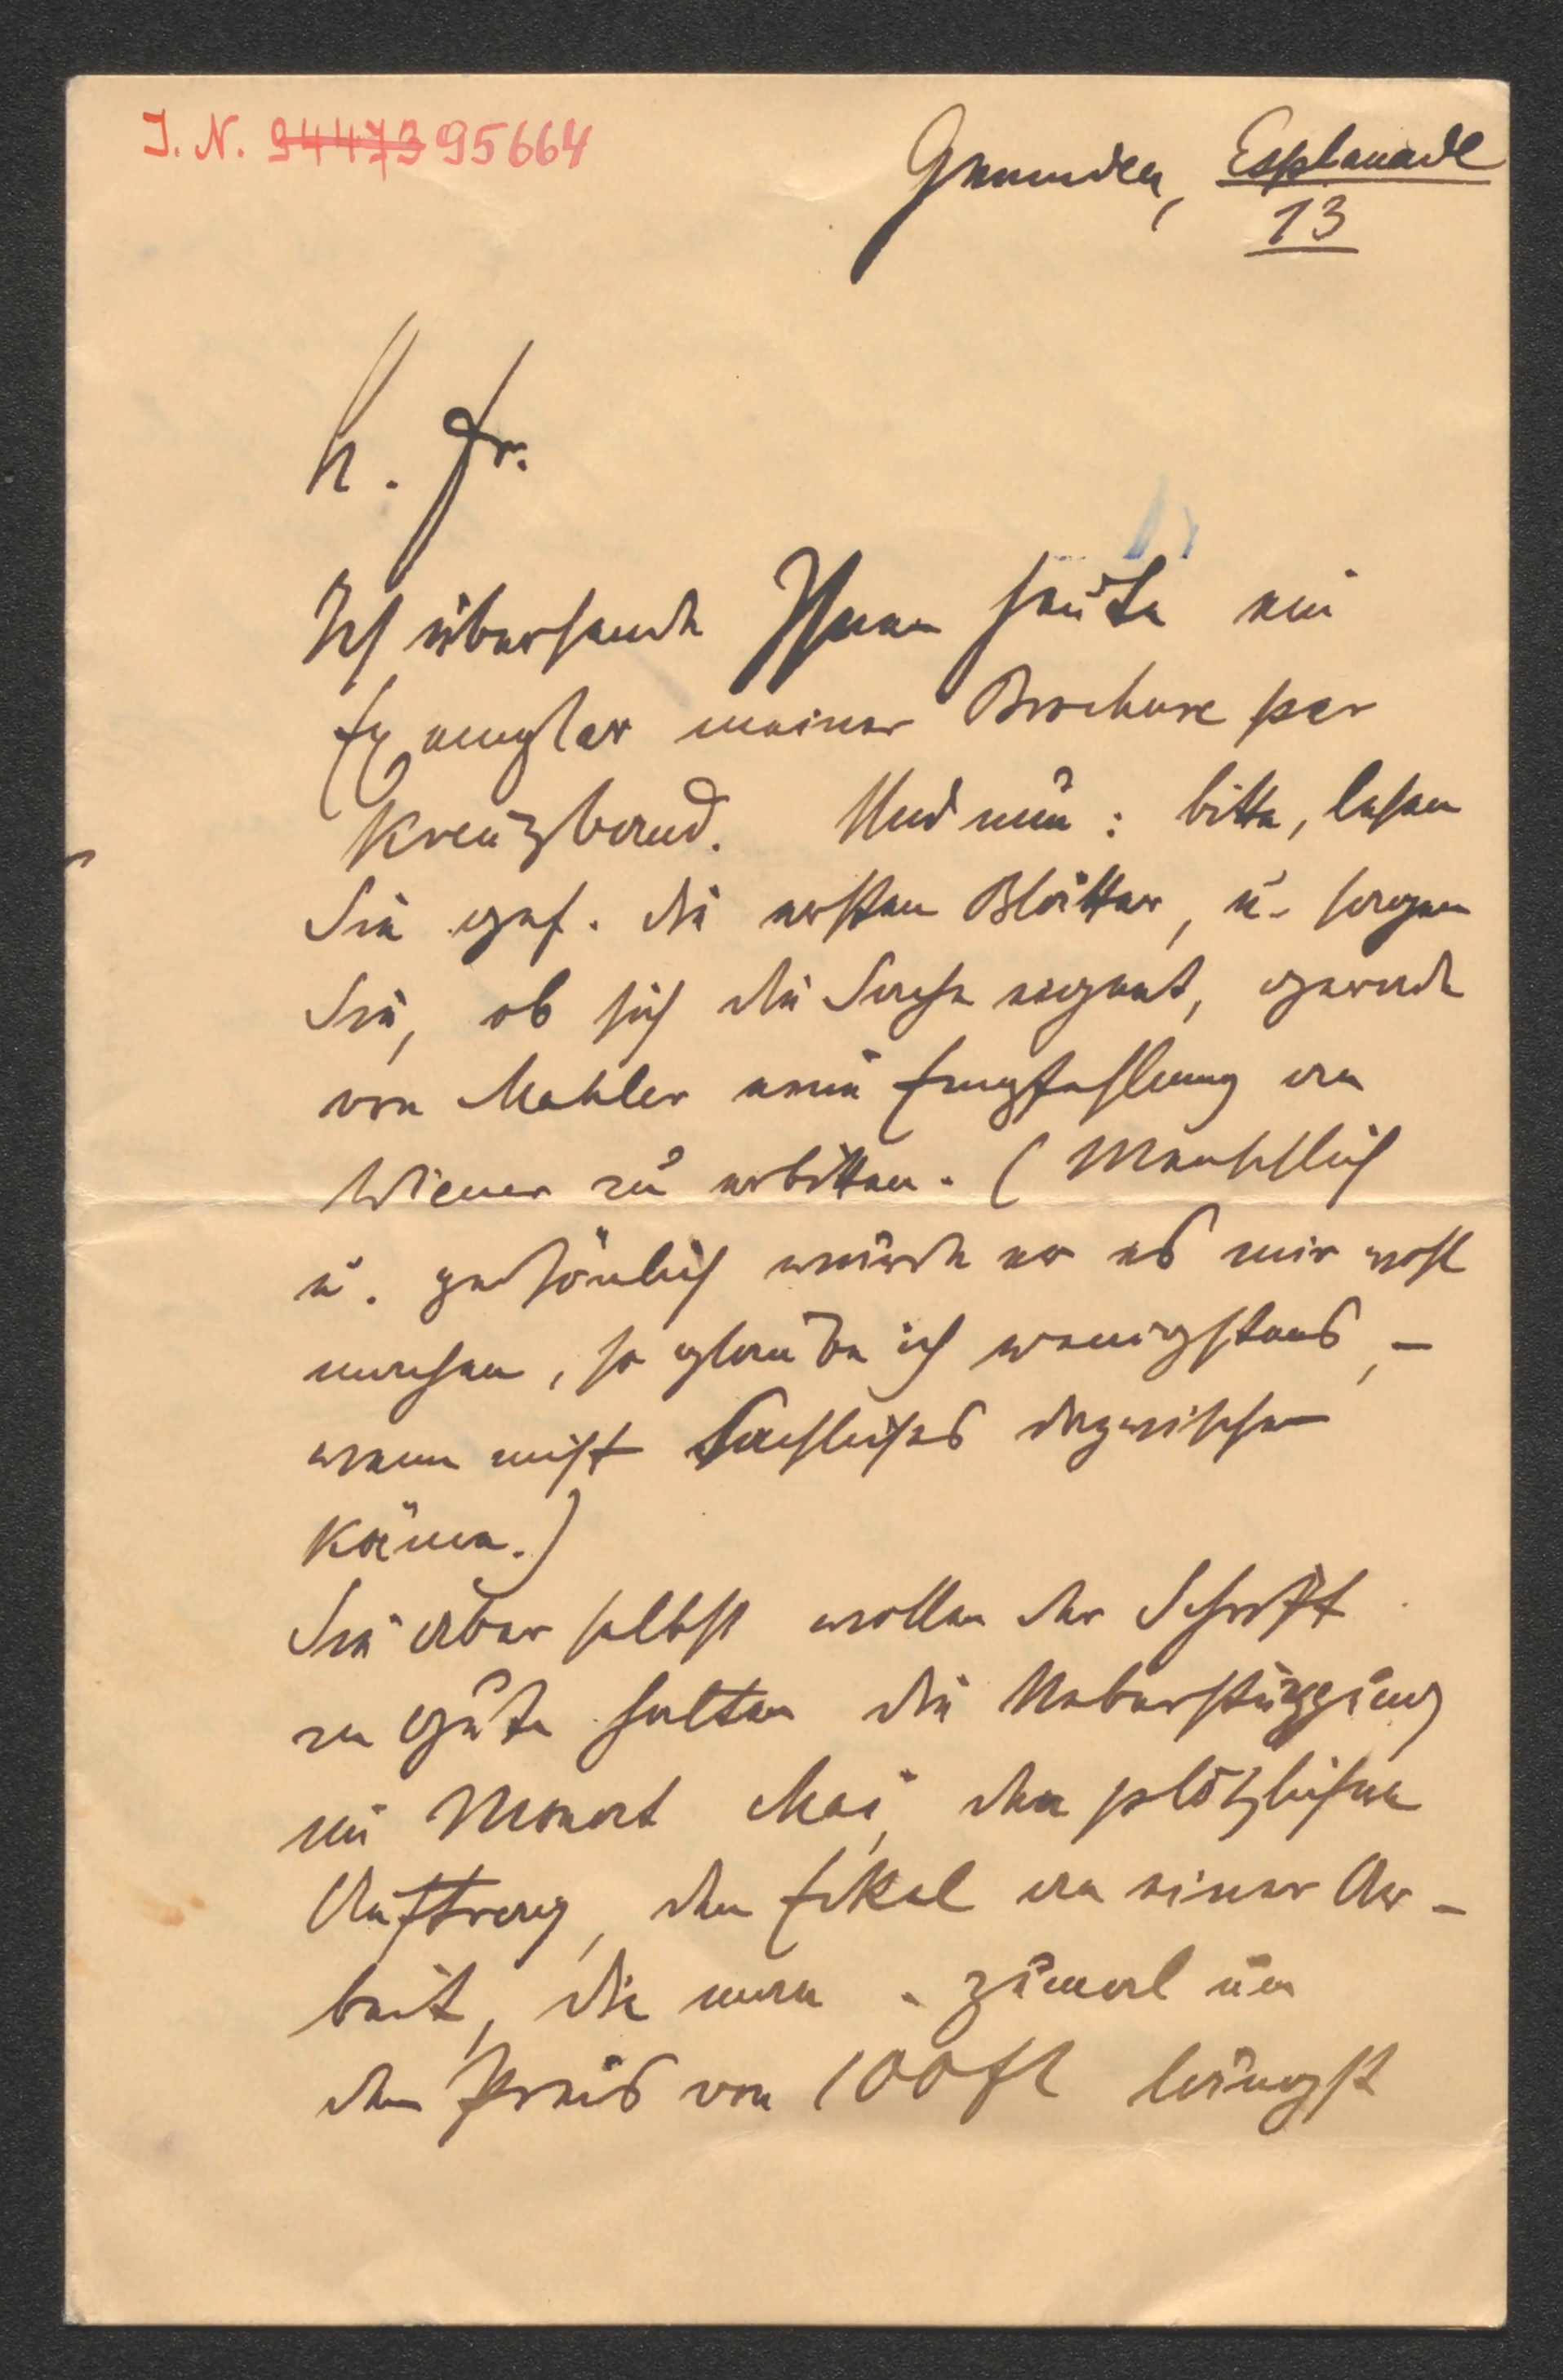 I. N. 94473 95664
Gmunden, Esplanade
13
h. Fr.
Ich übersende Ihnen heute ein
Exemplar meiner Brochure per
Kreuzband. Und nun: bitte, lesen
Sie gef. die ersten Blätter, u. sagen
Sie, ob sich die Sache eignet, gerade
von Mahler eine Empfehlung an
Wiener zu erbitten. (Menschlich
u. persönlich würde er es mir wohl
machen, so glaube ich wenigstens, –
wenn nicht Sachliches dazwischen
käme.)
Sie aber selbst wollen der Schrift
zu Gute halten die Ueberstürzung
im Monat Mai, den plötzlichen
Auftrag, den Ekel an einer Ar-
beit, die man - zumal um
den Preis von 100 fl längst